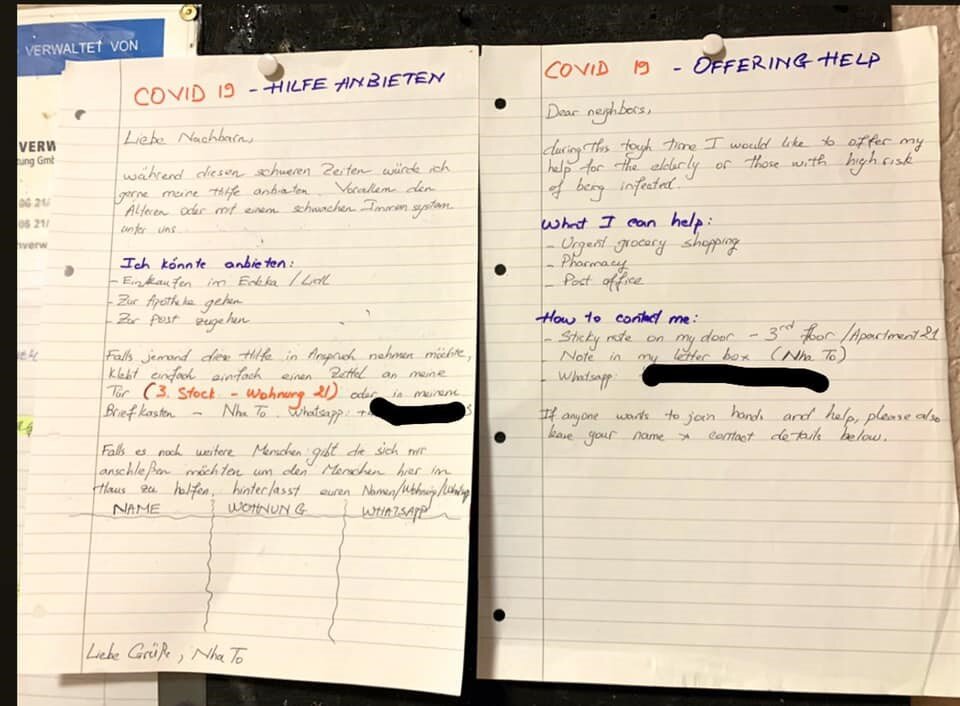 VERWALTET VON
VERW
tung Gmb
06 21/
06 21/
nverw
COVID 19 - HILFE ANBIETEN
Liebe Nachbarn,
während diesen schweren Zeiten würde ich
gerne meine Hilfe anbieten. Vorallem den
Älteren oder mit einem schwachen Immunsystem
unter uns.
Ich könnte anbieten:
- Einkaufen im Edeka / Lidl
- Zur Apotheke gehen
- Zur Post zugehen
Falls jemand diese Hilfe in Anspruch nehmen möchte,
klebt einfach einfach einen Zettel an meine
Tür (3. Stock - Wohnung 21) oder in meinem
Briefkasten - Nha To. Whatsapp: +
Falls es noch weitere Menschen gibt die sich mir
anschließen möchten um den Menschen hier im
Haus zu helfen, hinterlasst euren Namen/Wohnung/Whatsapp
NAME WOHNUNG WHATSAPP
Liebe Grüße, Nha To
COVID 19 - OFFERING HELP
Dear neighbors,
during this tough time I would like to offer my
help for the elderly or those with high risk
of being infected.
What I can help:
- Urgent grocery shopping
- Pharmacy
- Post office
How to contact me:
- Sticky note on my door - 3rd floor /Apartment 21
- Note in my letter box (Nha To)
- Whatsapp:
If anyone wants to join hands and help, please also
leave your name + contact details below.